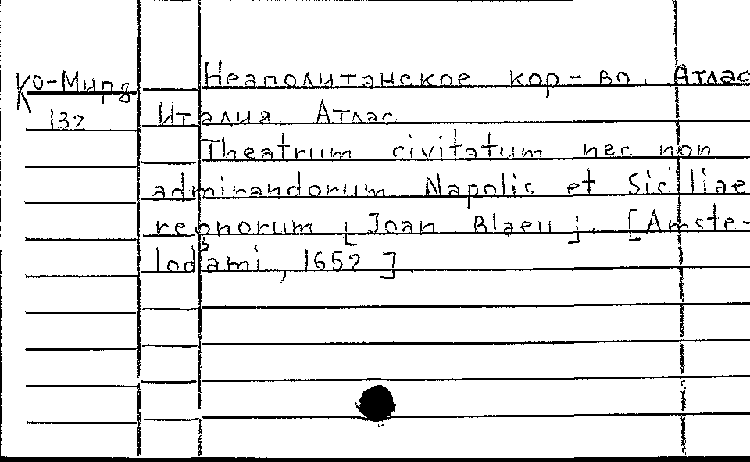 Неаполитанское кор-во. Атлас
Ко-Мирв
132
Италия Атлас
Theatrum civitatum nec non
admirandorum Napolis et Siciliae
regnorum [Joan Blaeu]. [Amste-
lodami, 1652]